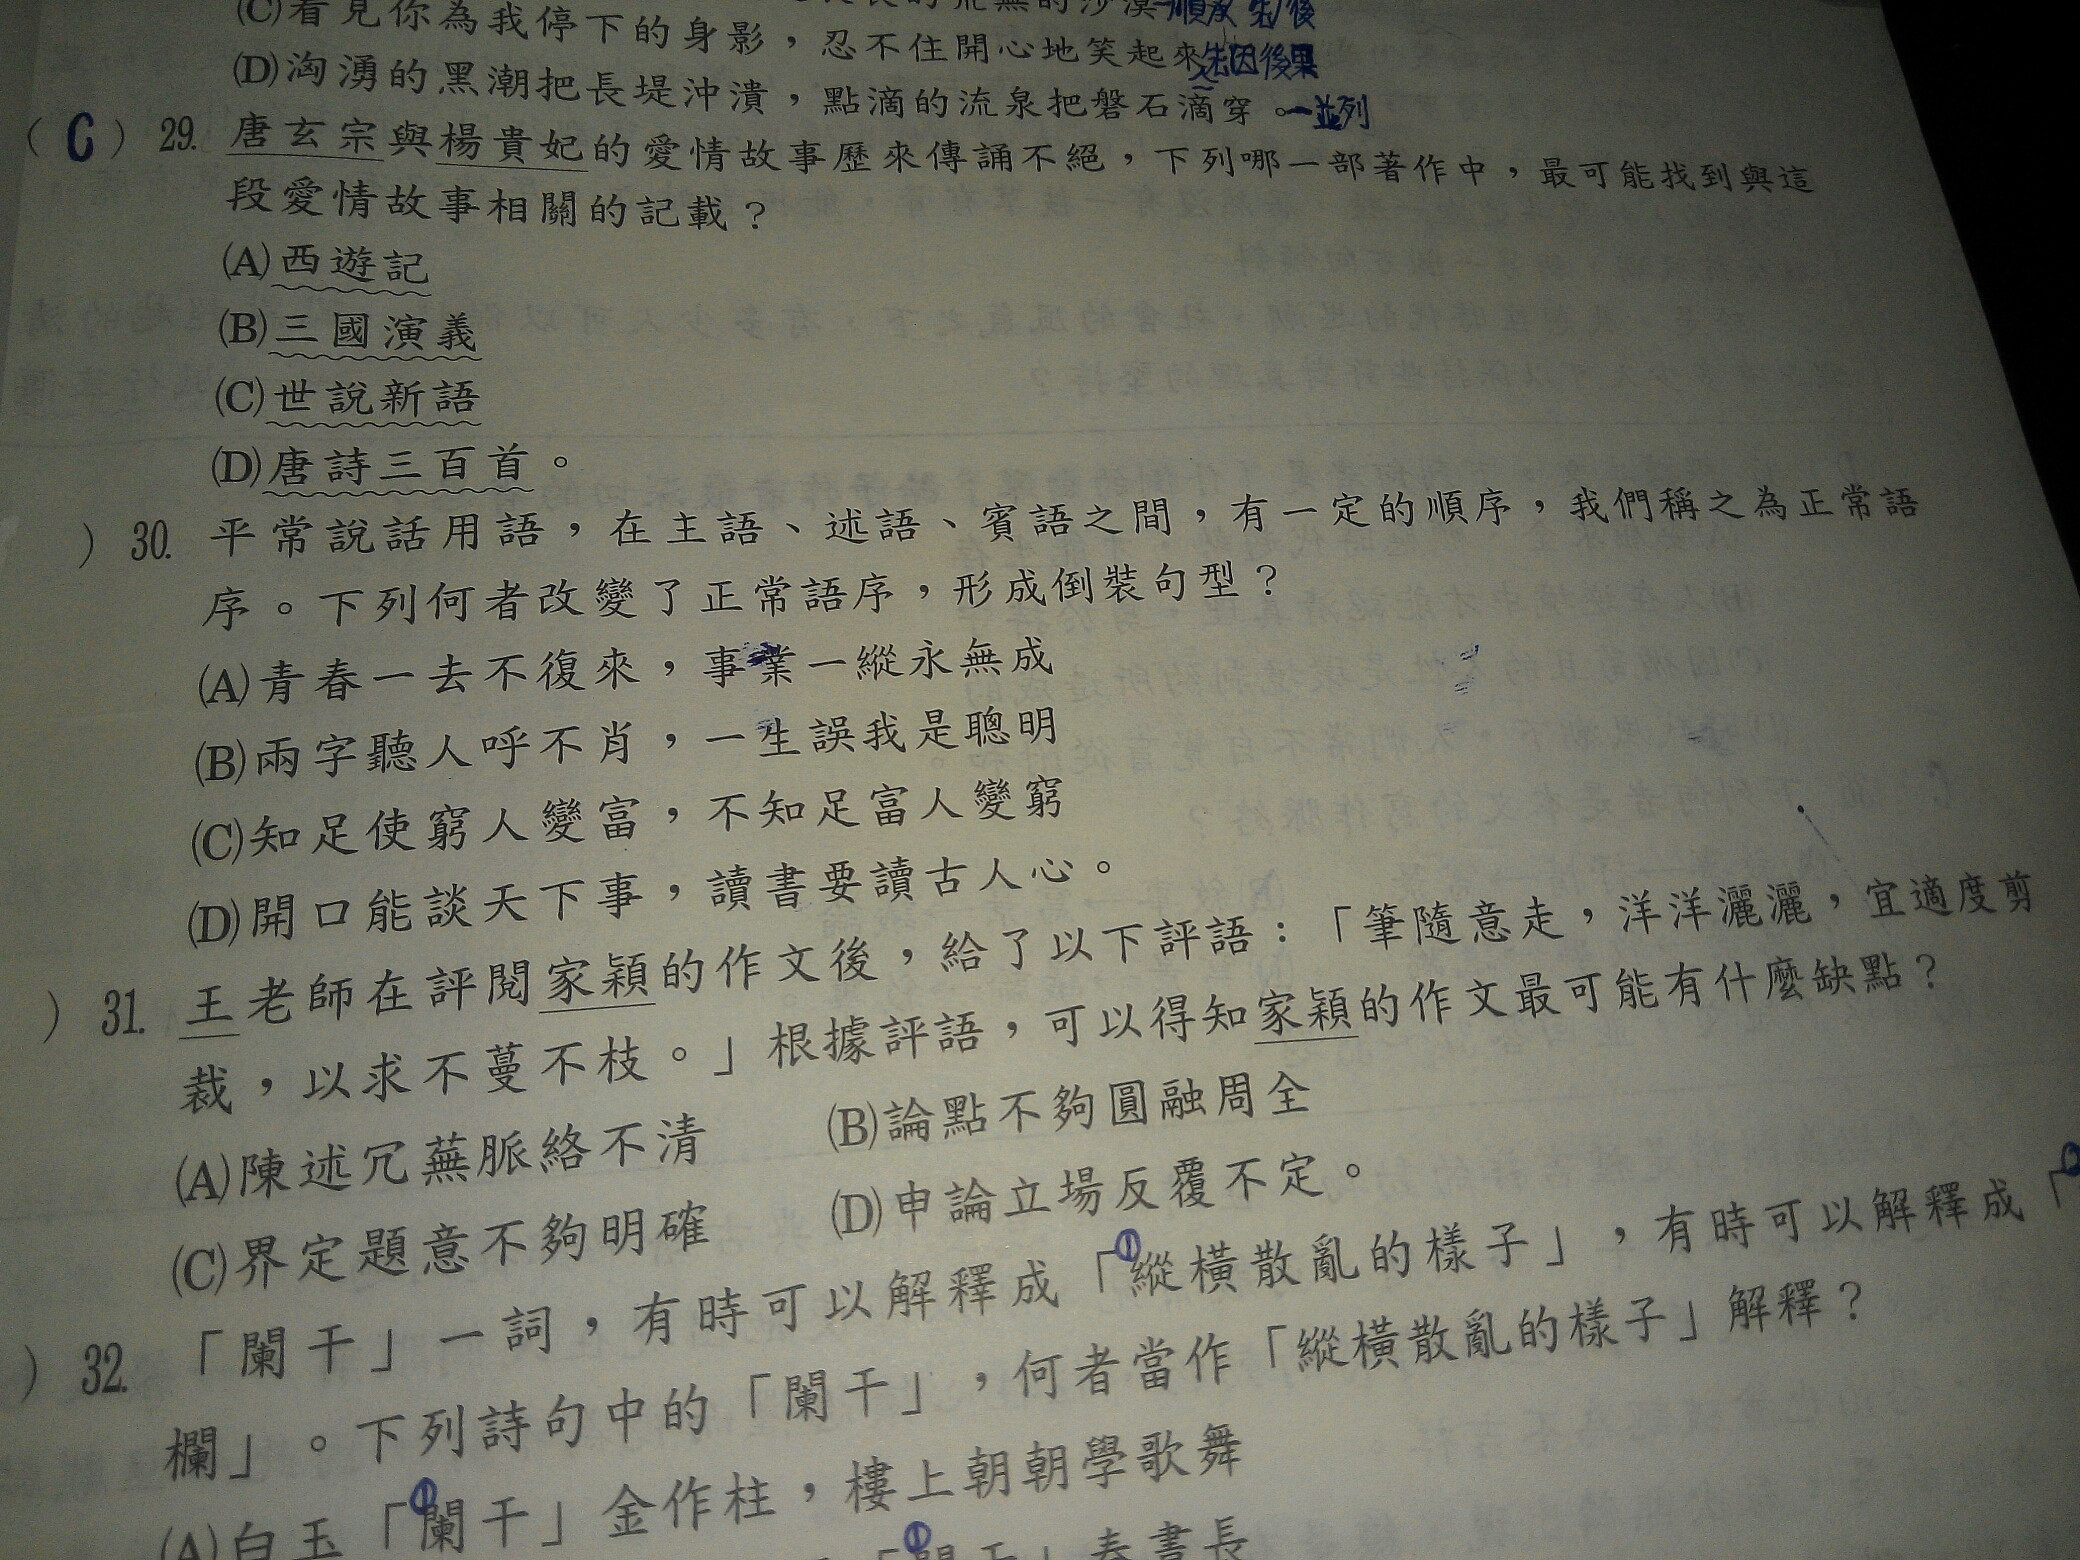 (C)看見你為我停下的身影，忍不住開心地笑起來 先因後果
(D)洶湧的黑潮把長堤沖潰，點滴的流泉把磐石滴穿。—並列
( C ) 29. 唐玄宗與楊貴妃的愛情故事歷來傳誦不絕，下列哪一部著作中，最可能找到與這
段愛情故事相關的記載？
(A)西遊記
(B)三國演義
(C)世說新語
(D)唐詩三百首。
) 30. 平常說話用語，在主語、述語、賓語之間，有一定的順序，我們稱之為正常語
序。下列何者改變了正常語序，形成倒裝句型？
(A)青春一去不復來，事業一縱永無成
(B)兩字聽人呼不肖，一生誤我是聰明
(C)知足使窮人變富，不知足富人變窮
(D)開口能談天下事，讀書要讀古人心。
) 31. 王老師在評閱家穎的作文後，給了以下評語：「筆隨意走，洋洋灑灑，宜適度剪
裁，以求不蔓不枝。」根據評語，可以得知家穎的作文最可能有什麼缺點？
(A)陳述冗蕪脈絡不清 (B)論點不夠圓融周全
(C)界定題意不夠明確 (D)申論立場反覆不定。
) 32. 「闌干」一詞，有時可以解釋成「①縱橫散亂的樣子」，有時可以解釋成「
欄」。下列詩句中的「闌干」，何者當作「縱橫散亂的樣子」解釋？
(A)白玉「①闌干」金作柱，樓上朝朝學歌舞
①「闌干」春晝長